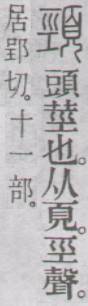 頸 頭莖也。从頁。巠聲。
居郢切。十一部。